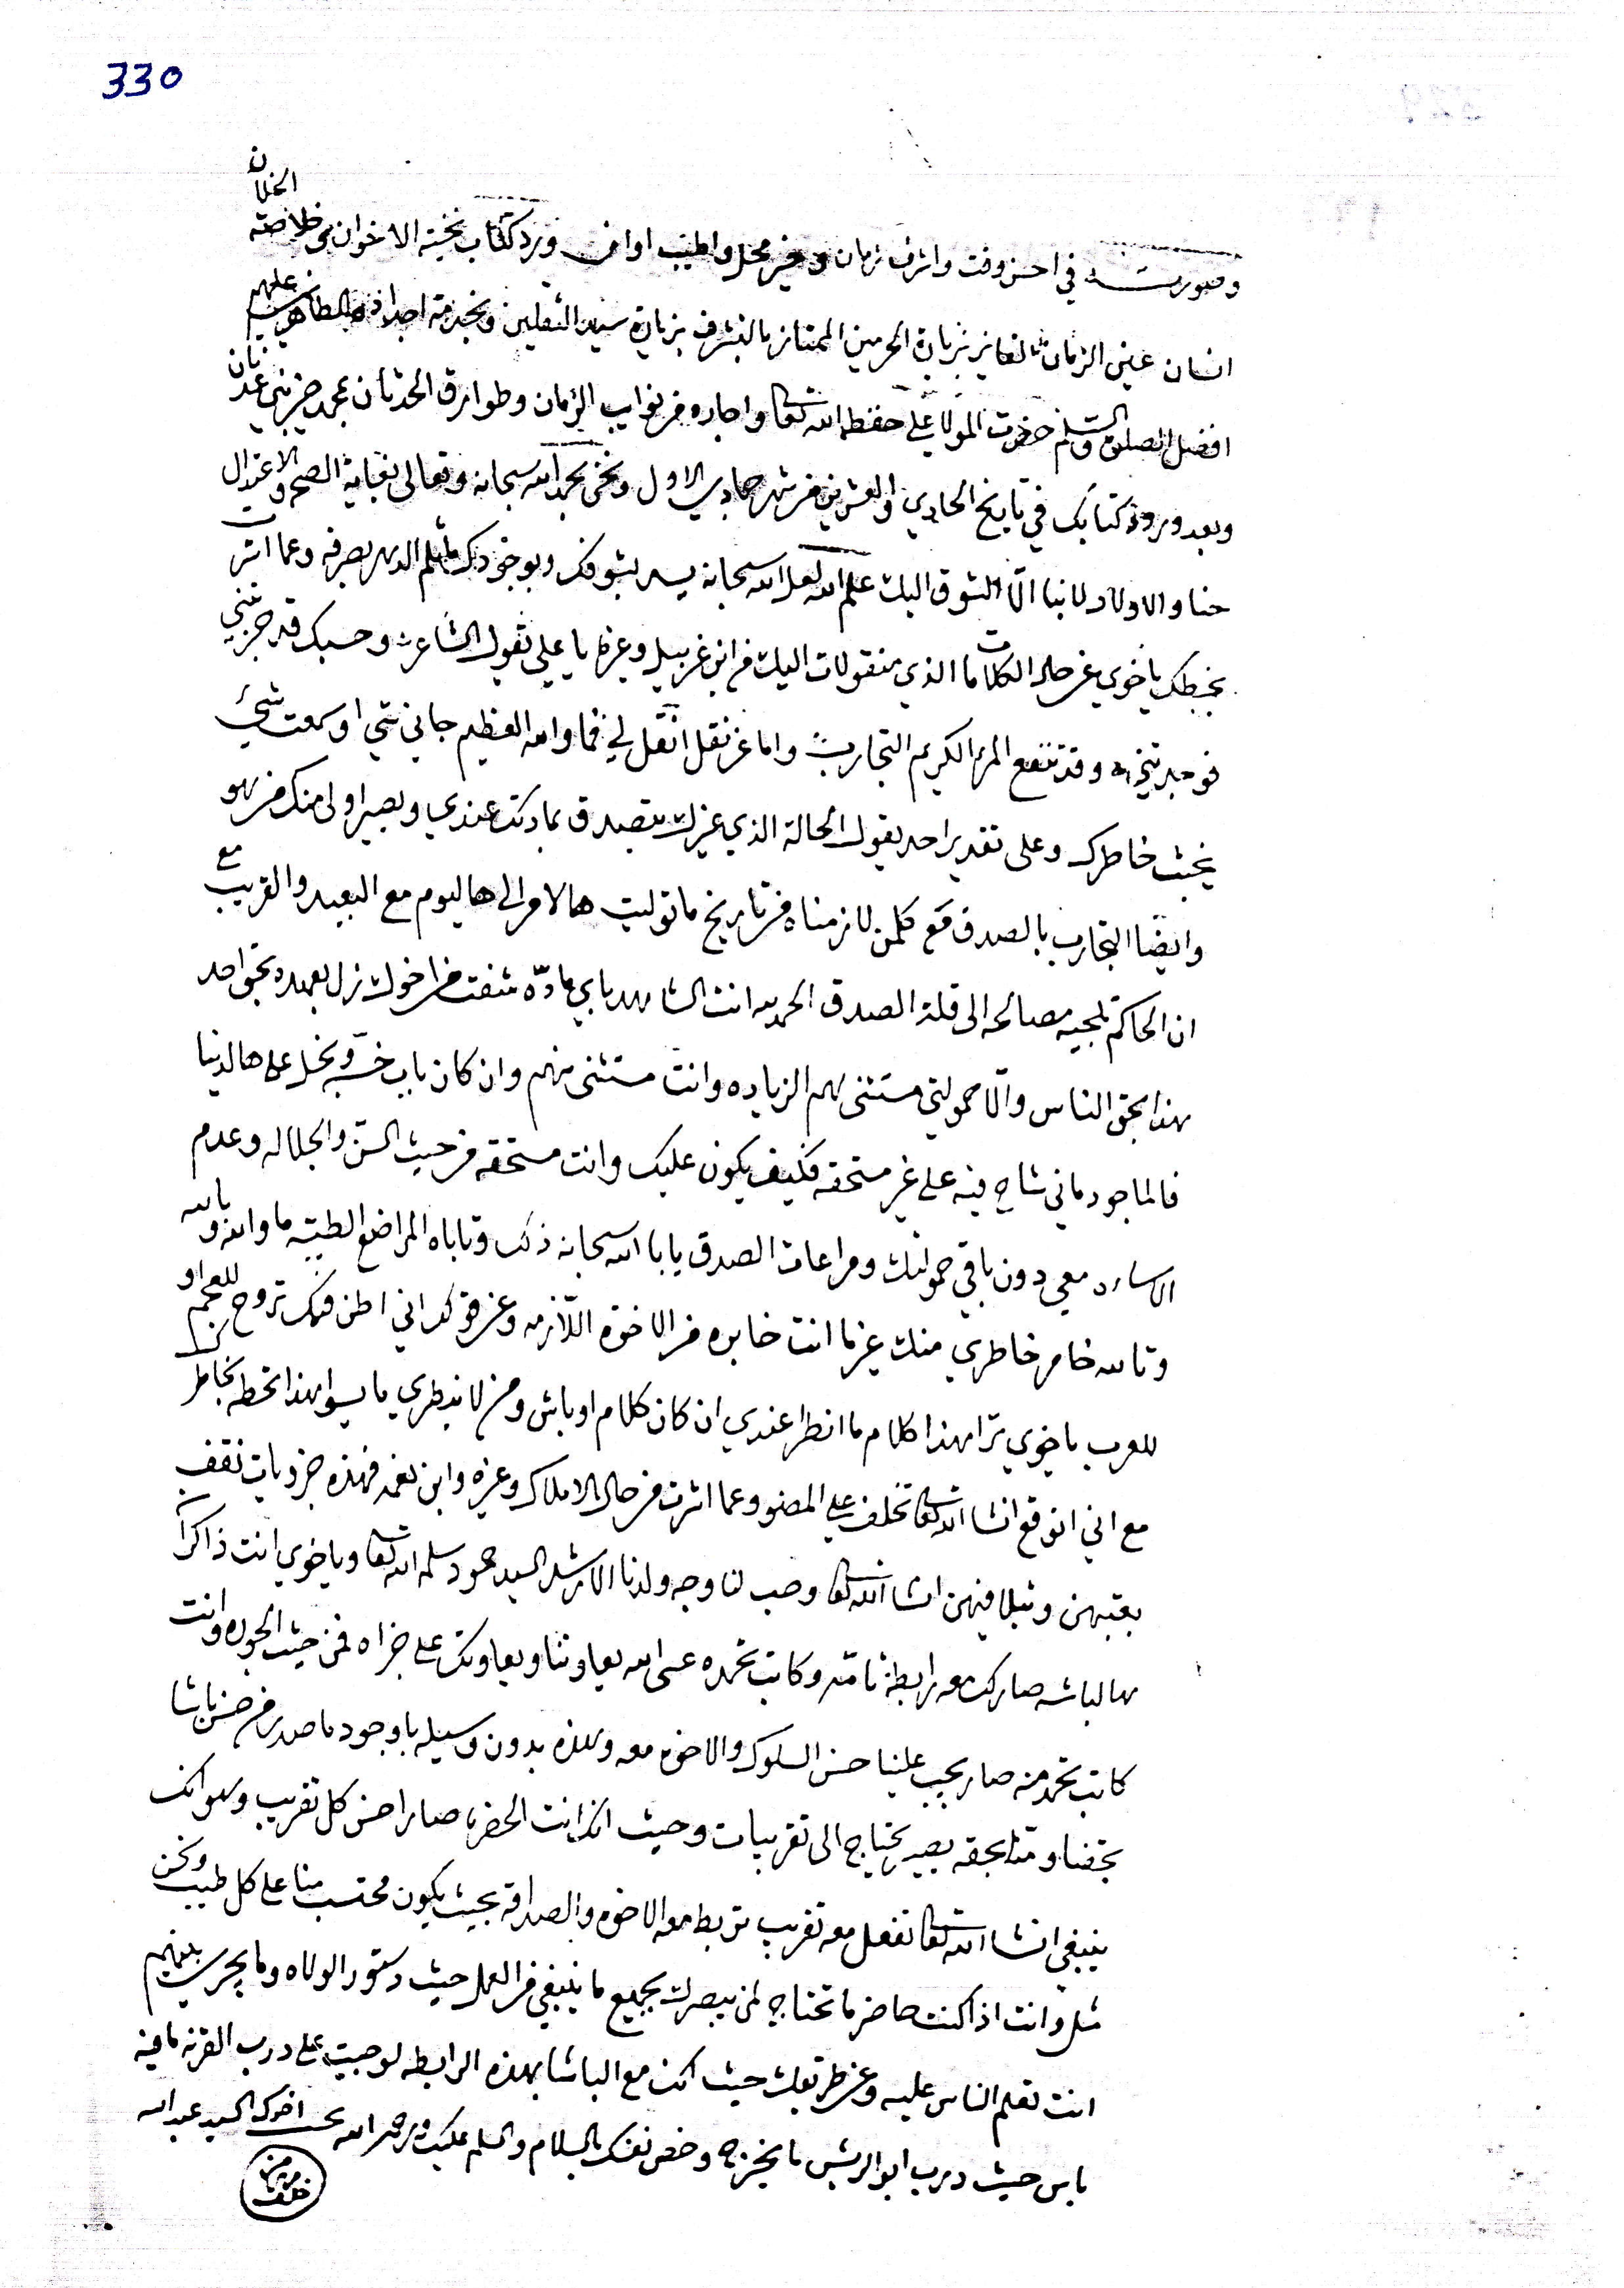 330
الخلان
وصورته في احسن وقت واشرف زمان وخير محل واطيب اوان ورد كتاب نخبة الاخوان خلاصة
انسان عين الزمان الفايز بزيارة الحرمين الممتاز بالتشرف بزيارة سيد الثقلين وبخدمة اجداده الطاهرين عليهم
افضل الصلوة والسلم حضرت المولا علي حفظه الله تعالى واجاره من نوايب الزمان وطوارق الحدثان بمحمد خير بني عدنان
وبعد ورود كتابك في تاريخ الحادي والعشرين من شهر جمادي الاول ونحن بحمد الله سبحانه وتعالى بغاية الصحة والاعتدال
حنا والاولاد لا بنا الّا الشوق اليك علم الله لعل الله سبحانه يسر بشوفك وبوجودك الدهر بصرفه وعما اشرت
بخطك ياخوي عن حال الكلامات الذي منقولات اليك من ابن غربيل وغيره يا علي نقول الشاعر وحسبك قد جربتني
فوجدتني وقد تنفع المرء الكريم التجارب واما عن نقل انقل لي فما والله العظيم جاني شي او سمعت شي
يخبث خاطرك وعلى تقدير احد يقول الحالة الذي غيرك يتصدق بمادتك عندي ويصير اولى منك من هو
وايضًا التجارب بالصدق مع كلمن لازمناه من تاريخ ما توليت هالامر الى هاليوم مع البعيد والقريب مع
ان الحاكم تلجيه مصالحه الى قلة الصدق الحمد لله انت الشاهد باي مادّه شفت من اخوك نزل بعهده بحق احد
هذا بحق الناس والّا حمولتي مستثنى لهم الزياده وانت مستثنى منهم وان كان باب خسّه وبخل على هالدنيا
فالماجود ماني شاح فيه على غير مستحقه فكيف يكون عليك وانت مستحقه من حيث السن والجلاله وعدم
الاساءه معي دون باقي حمولتك ومراعات الصدق يابا الله سبحانه ذلك وتاباه المراضع الطيبه ما والله وبالله
وتالله خامر خاطري منك غير ما انت خابره من الاخوة اللازمه وعن قولك اني اظن فيك تروح للعجم او
للعرب ياخوي ترا هذا كلام ما انطرا عندي ان كان كلام اوباش ومن لا يدري ما يسوا هذا تخطه بخاطرك
مع اني اتوقع انشا الله تعالى تخلف علي المضو وعما اشرت من حال الاملاك وغيره وابن نعمه فهذه جزويات نقف
بعقبهن ونتلافيهن انشا الله تعالى وصب لنا وجه ولدنا الارشد السيد حمود سلمه الله تعالى وياخوي انت ذاكرًا
هالباشه صارلك معه رابطة تامّه وكانت تحمده عسى الله يعاوننا ويعاونك على جزاه فمن حيث الجوره وانت
كانت تحمد منه صار يجب علينا حسن السلوك والاخوه معه وهذه بدون وسيله باوجود ما صدر من حسن باشا
بحقنا ومنا بحقه يصير يحتاج الى تقريبات وحيث انك انت الحضرة صار احسن كل تقريب وهو انك
ينبغي انشا الله تعالى تفعل معه تقريب تربط معه الاخوه والصداقه بحيث يكون محتسب منا على كل طيب ونحن
مثله وانت اذا كنت حاضر ما تحتاج لمن يبصرك بجميع ما ينبغي من العمل حيث دستور الولاه وما يجري بينهم
انت تعلم الناس عليه وعن طريقك حيث انت مع الباشا بهذه الرابطه لو جيت على درب القرنه ما فيه
باس حيث درب ابو الريش ما يخرج وخص نفسك بالسلام والسلم عليك ورحمة الله محب اخوك السيد عبد الله